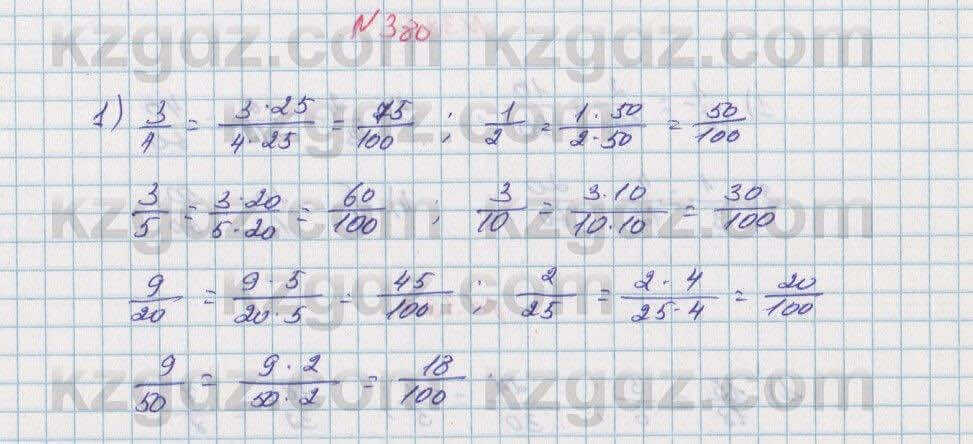 № 380
1) 3/4 = 3·25/4·25 = 75/100 ; 1/2 = 1·50/2·50 = 50/100
3/5 = 3·20/5·20 = 60/100 ; 3/10 = 3·10/10·10 = 30/100
9/20 = 9·5/20·5 = 45/100 ; 2/25 = 2·4/25·4 = 20/100
9/50 = 9·2/50·2 = 18/100
kzgdz.com kzgdz.com
kzgdz.com kzgdz.com
kzgdz.com kzgdz.com
kzgdz.com kzgdz.com
kzgdz.com kzgdz.com